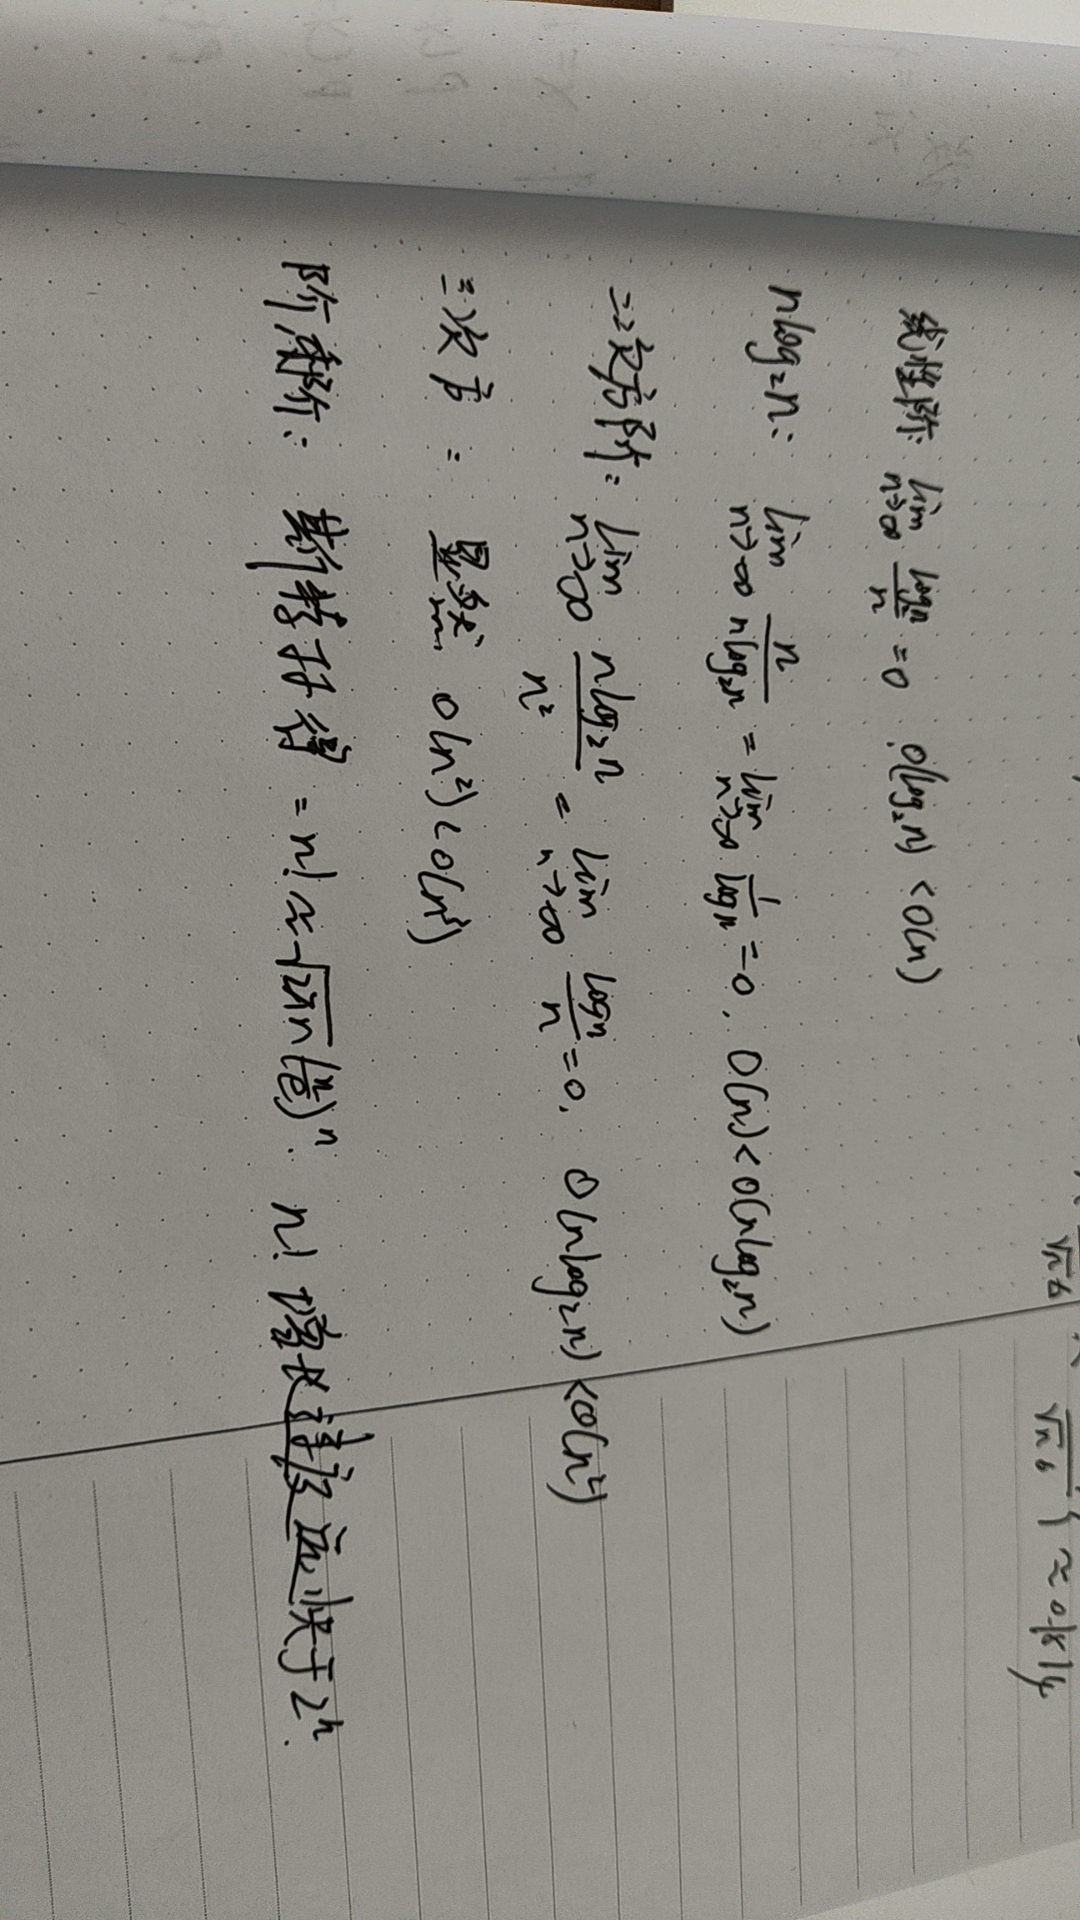 线性阶: lim n→∞ log₂n/n = 0 . O(log₂n) < O(n)
nlog₂n: lim n→∞ n/nlog₂n = lim n→∞ 1/log n = 0 . O(n) < O(nlog₂n)
二次方阶: lim n→∞ nlog₂n/n² = lim n→∞ log n/n = 0, O(nlog₂n) < O(n²)
三次方: 显然 O(n²) < O(n³)
阶乘阶: 斯特林得 = n! ~ √2πn (n/e)ⁿ. n! 增长速度远快于 2ⁿ.